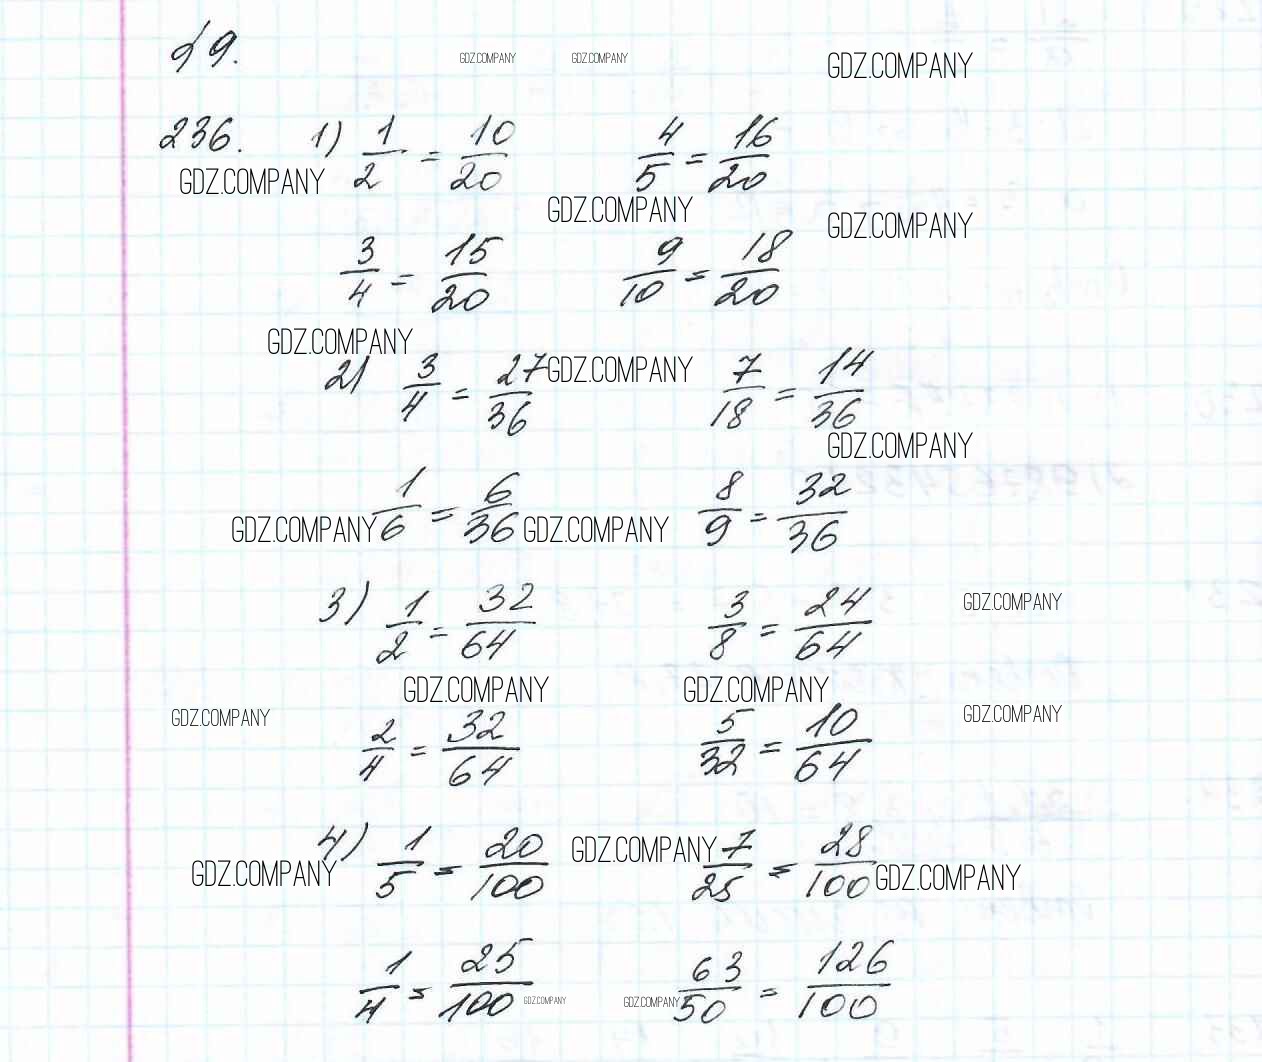 §9.
GDZ.COMPANY GDZ.COMPANY GDZ.COMPANY
236. 1) 1/2 = 10/20 4/5 = 16/20
GDZ.COMPANY
GDZ.COMPANY GDZ.COMPANY
3/4 = 15/20 9/10 = 18/20
GDZ.COMPANY
2) 3/4 = 27/36 GDZ.COMPANY 7/18 = 14/36
GDZ.COMPANY
GDZ.COMPANY 1/6 = 6/36 GDZ.COMPANY 8/9 = 32/36
3) 1/2 = 32/64 3/8 = 24/64 GDZ.COMPANY
GDZ.COMPANY GDZ.COMPANY
GDZ.COMPANY GDZ.COMPANY
2/4 = 32/64 5/32 = 10/64
4) 1/5 = 20/100 GDZ.COMPANY 7/25 = 28/100
GDZ.COMPANY GDZ.COMPANY
1/4 = 25/100 63/50 = 126/100
GDZ.COMPANY GDZ.COMPANY